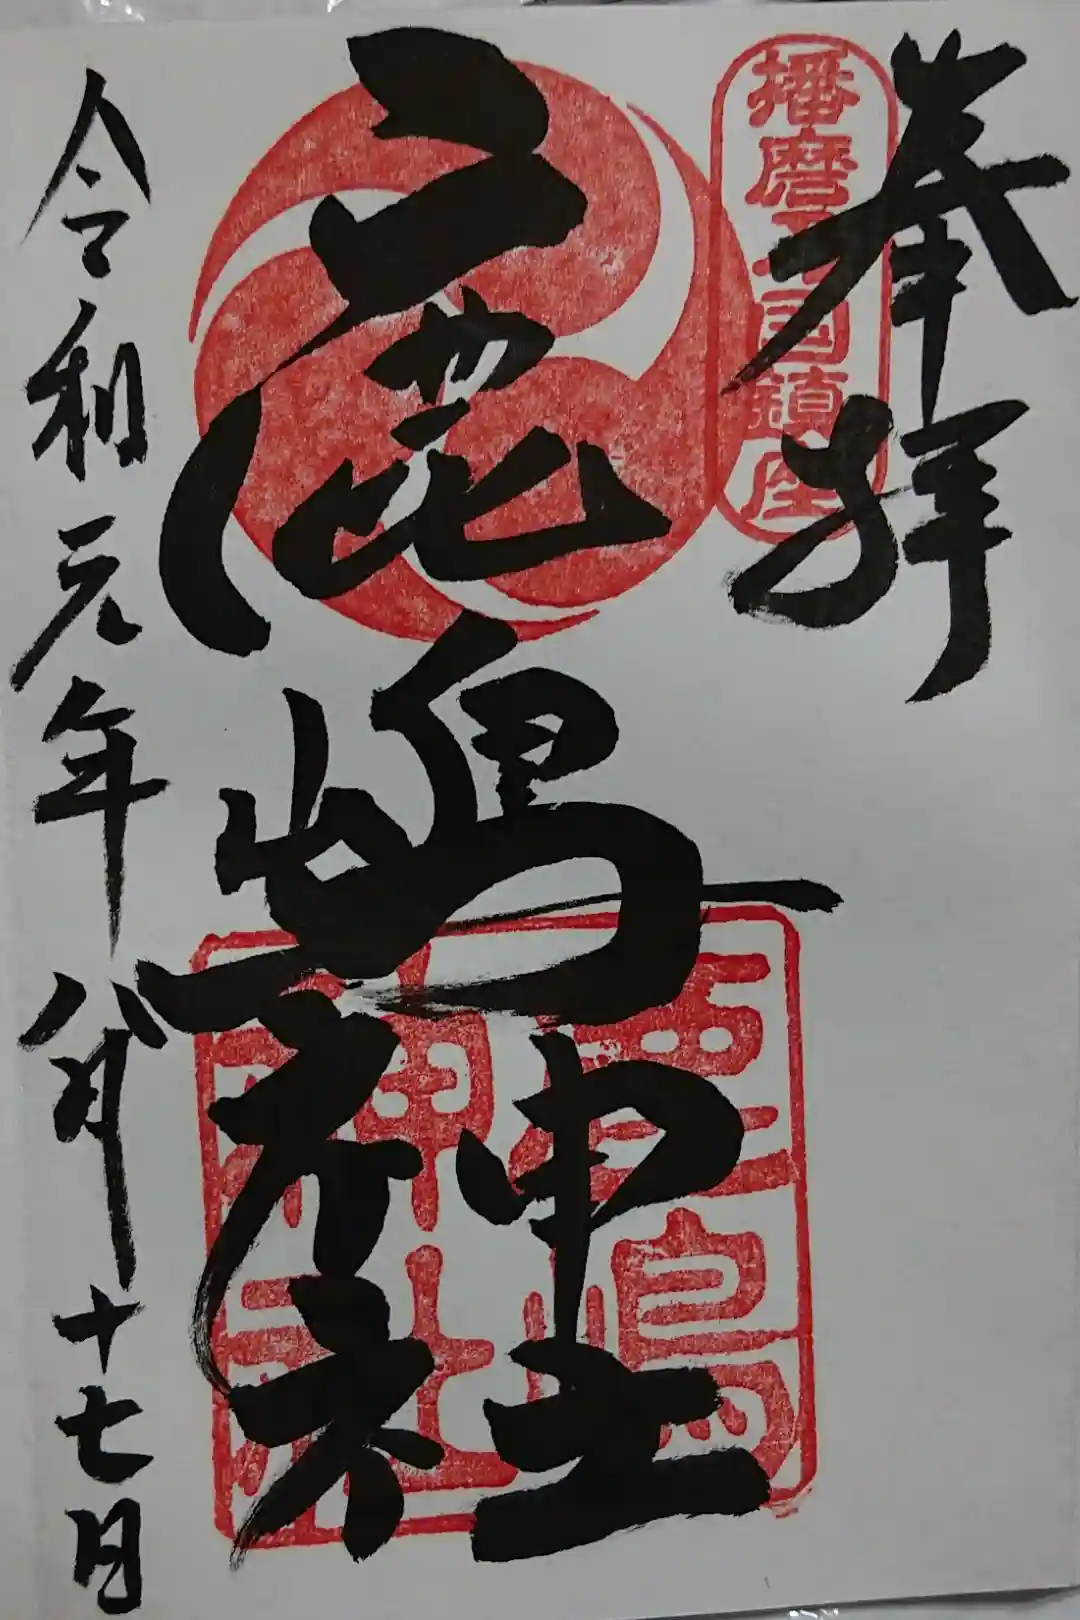 奉拝
播磨之国鎮座
鹿嶋神社
令和元年八月十七日